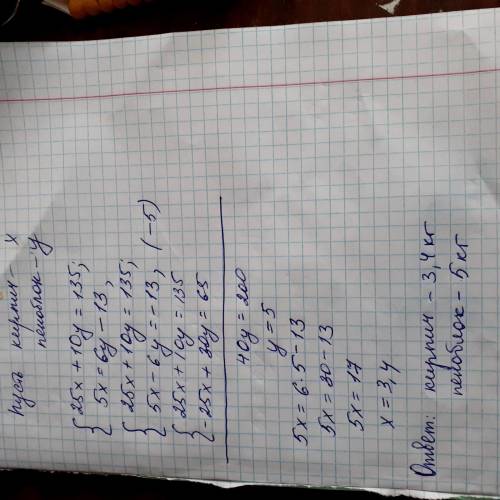 Пусть кирпич - x
пеноблок - y
{ 25x + 10y = 135;
5x = 6y - 13,
{ 25x + 10y = 135;
5x - 6y = -13, (-5)
{ 25x + 10y = 135
-25x + 30y = 65
40y = 200
y = 5
5x = 6·5 - 13
5x = 30 - 13
5x = 17
x = 3,4
Ответ: кирпич - 3,4 кг
пеноблок - 5 кг